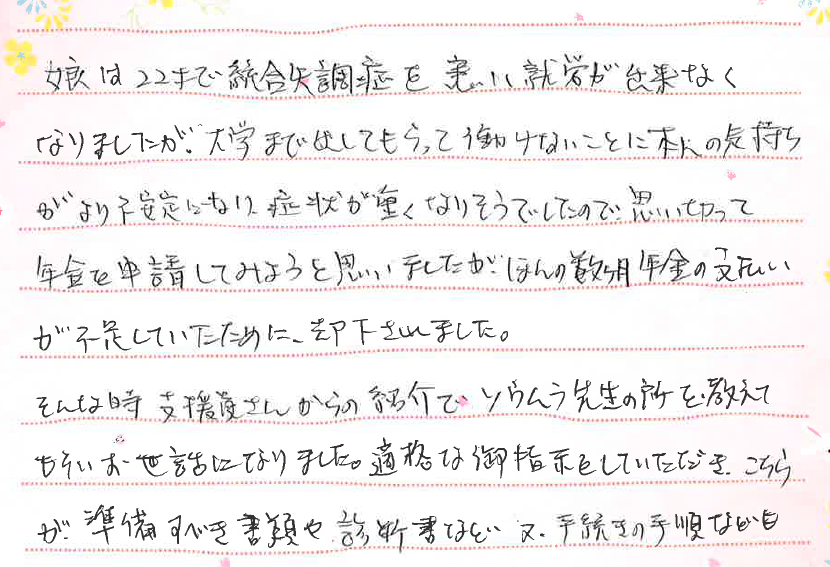 娘は22才で統合失調症を患い、就労が出来なく
なりましたが、大学まで出してもらって働けないことに本人の気持ち
がより不安定になり、症状が重くなりそうでしたので、思い切って
年金を申請してみようと思いましたが、ほんの数ヶ月年金の支払い
が不足していたために、却下されました。
そんな時 支援員さんからの紹介で、先生の所を教えて
もらいお世話になりました。適格な御指示をしていただき、こちら
が、準備すべき書類や診断書など、又、手続きの手順なども